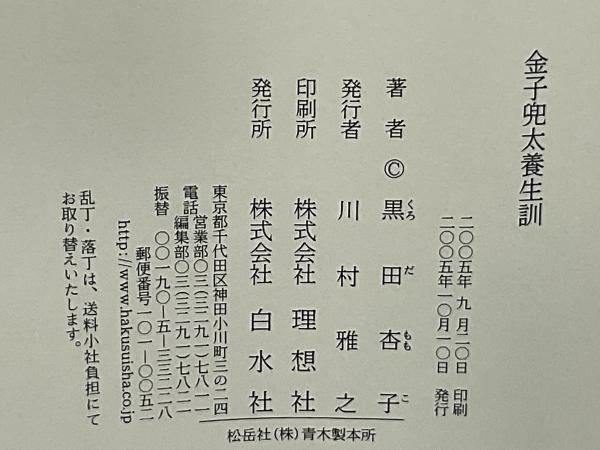 金子兜太養生訓
二〇〇五年 九 月二〇日 印刷
二〇〇五年一〇月一〇日 発行
著者 © 黒田杏子
くろ だ もも こ
発行者 川村雅之
印刷所 株式会社 理想社
発行所 株式会社 白水社
東京都千代田区神田小川町三の二四
電話 営業部〇三(三二九一)七八一一
編集部〇三(三二九一)七八二一
振替 〇〇一九〇-五-三三二二八
郵便番号一〇一-〇〇五二
http://www.hakusuisha.co.jp
乱丁・落丁は、送料小社負担にて
お取り替えいたします。
松岳社(株)青木製本所